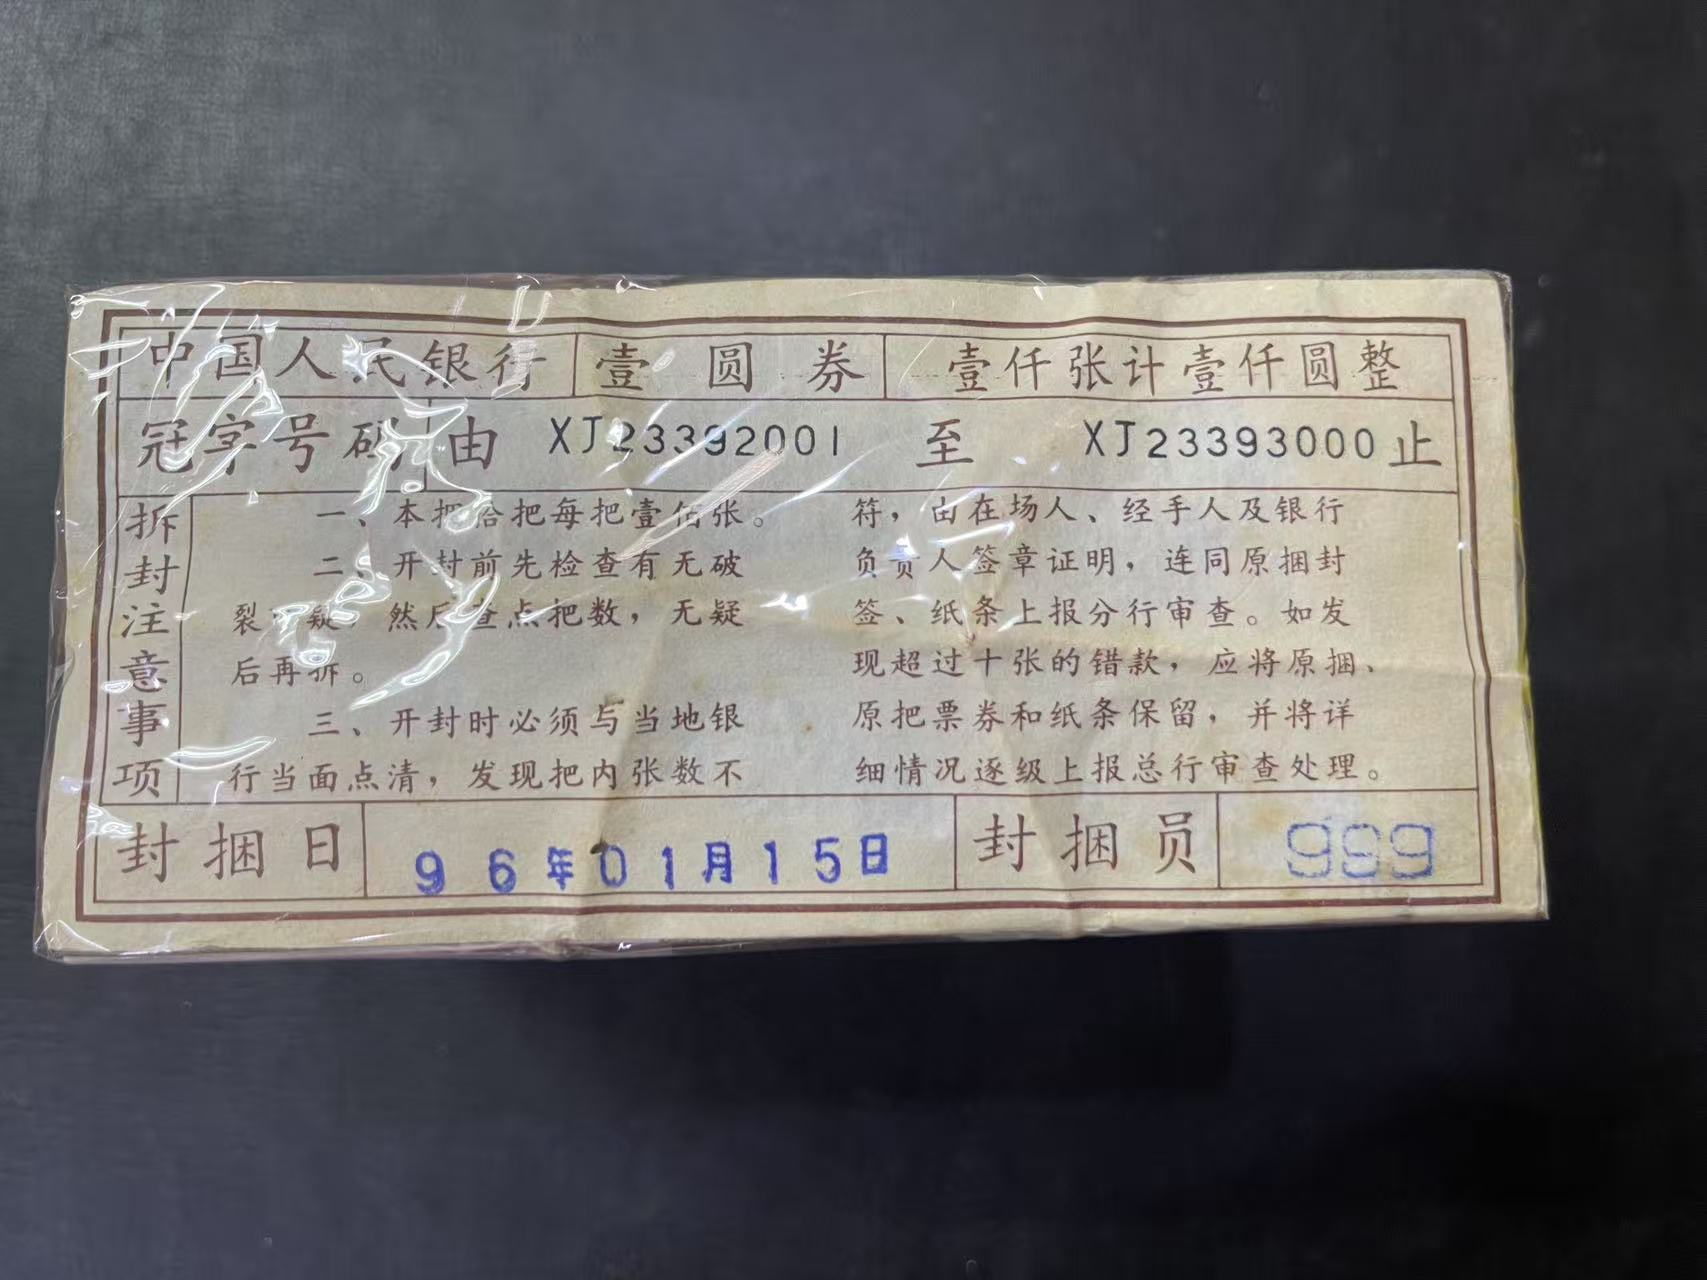 中国人民银行 壹圆券 壹仟张计壹仟圆整
冠字号码 由 XJ23392001 至 XJ23393000 止
拆封注意事项
一、本捆拾把每把壹佰张。
二、开封前先检查有无破
裂 疑，然后查点把数，无疑
后再拆。
三、开封时必须与当地银
行当面点清，发现把内张数不
符，由在场人、经手人及银行
负责人签章证明，连同原捆封
签、纸条上报分行审查。如发
现超过十张的错款，应将原捆、
原把票券和纸条保留，并将详
细情况逐级上报总行审查处理。
封捆日 96年01月15日 封捆员 999